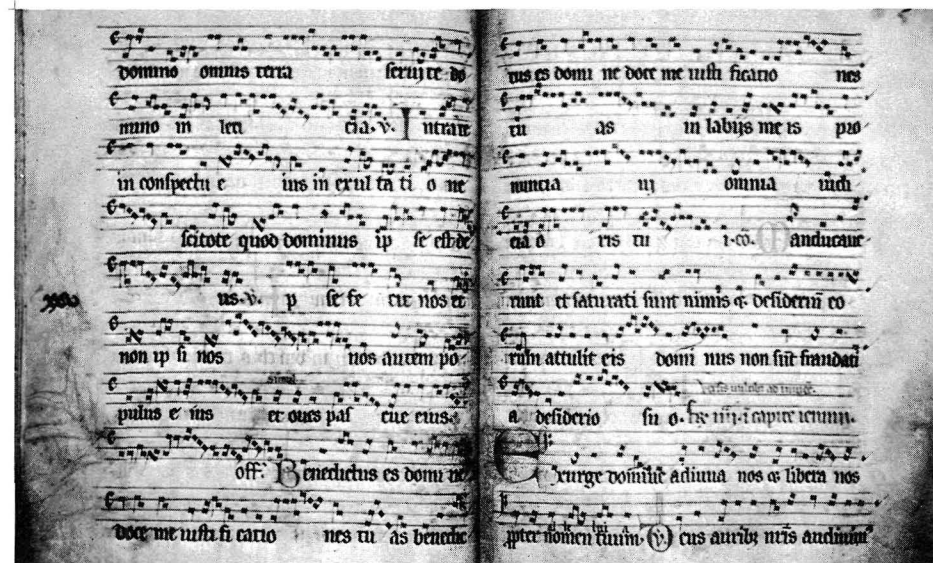 domino omnis terra seruite do
mino in leti cia. v. Intrate
in conspectu e ius in exul ta ti o ne
scitote quod dominus ip se est de
us. v. p se fe cit nos et
non ip si nos nos autem po
pulus e ius et oues pas cue eius.
off. Benedictus es domi ne
doce me iusti fi catio nes tu as benedic
tus es domi ne doce me iusti ficatio nes
tu as in labijs me is pro
nuncia ui omnia iudi
cia o ris tu i. cō. Manducaue
runt et saturati sunt nimis & desideriū eo
rum attulit eis domi nus non sūt fraudati
a desiderio su o.
Exurge domine adiuua nos & libera nos
ꝓpter nomen tuum. v. Deus auribꝫ nr̄is audiuimꝰ